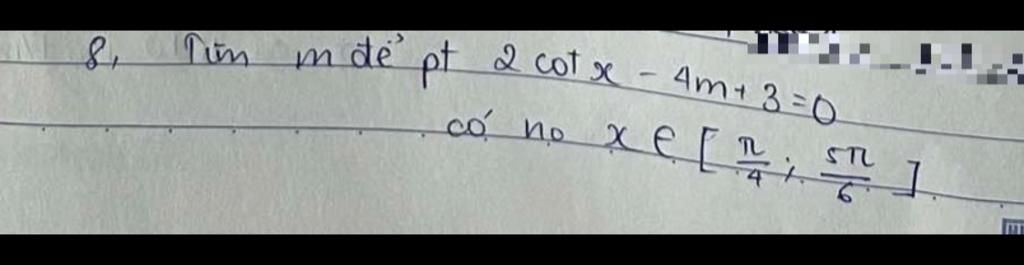 8, Tìm m để pt 2 cot x - 4m + 3 = 0
có no x ∈ [ π/4 ; 5π/6 ]